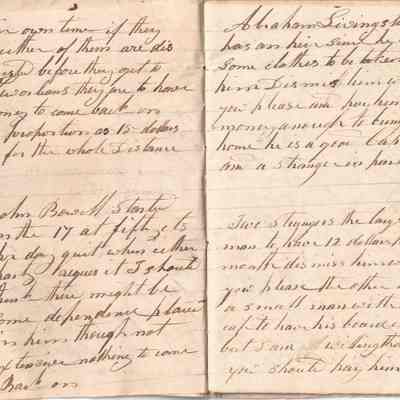 own time if they
either of them are dis
before they git to
orleans they are to have
money to come back on
proportion as 15 dollars
for the whole Distance
John Bowell Starts
on the 17 at fifty cts
per day quit when either
party it I should
think there might be
some dependence placed
in him though not
nothing to come
Back on
Abraham Livingst
has
some clothes to be
him Dismiss him
you please and pay him
money enough to bring
home he is a good Cap
am a stranger in par
Two strangers the larg
man to have 12 dollars p
month dismiss him
you please the other
a small man with
cap to have his board
but I am willing th
you should pay him